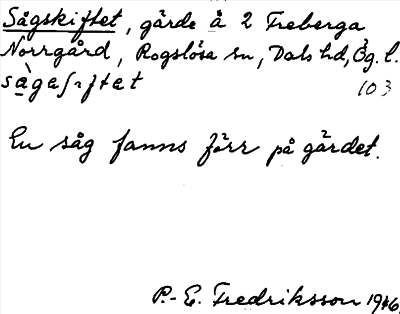 Sågskiftet, gärde å 2 Freberga
Norrgård, Rogslösa sn, Dals hd, Ög. l.
103
En såg fanns förr på gärdet.
P.-E. Fredriksson 1946.